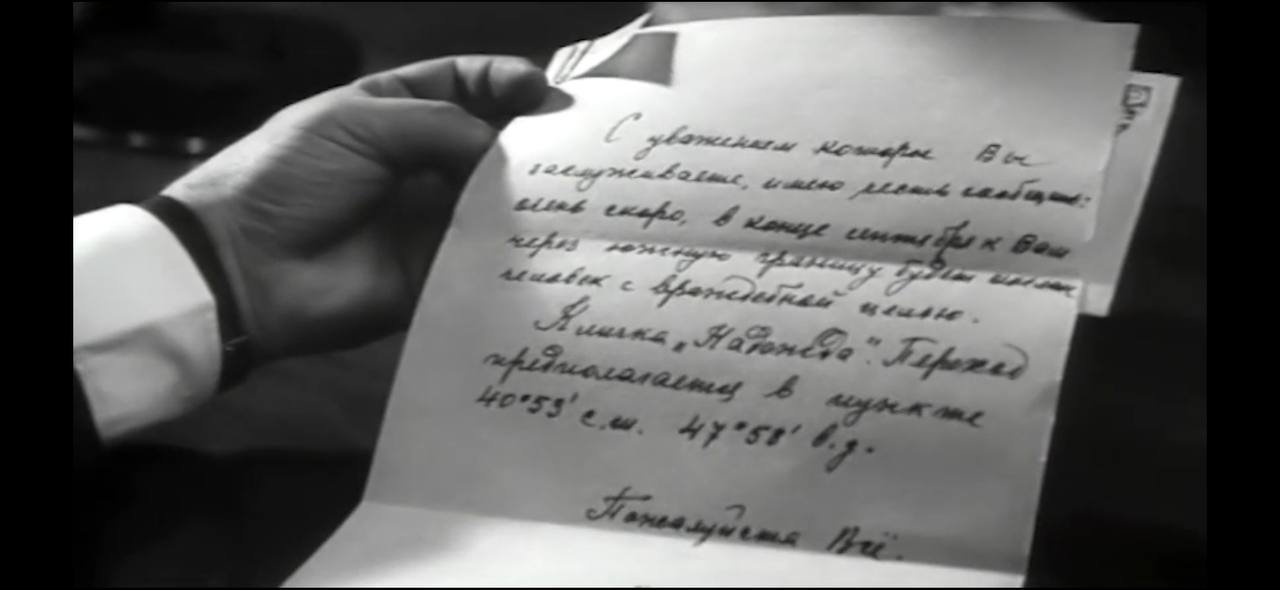 С уважением которы Вы
заслуживаете, имею честь сообщить:
очень скоро, в конце сентября к Вам
через южную границу будет послан
человек с враждебной целью.
Кличка „Надюжда". Переход
предполагается в пункте
40°53' с.ш. 47°58' в.д.
Пожалуйста Всё.